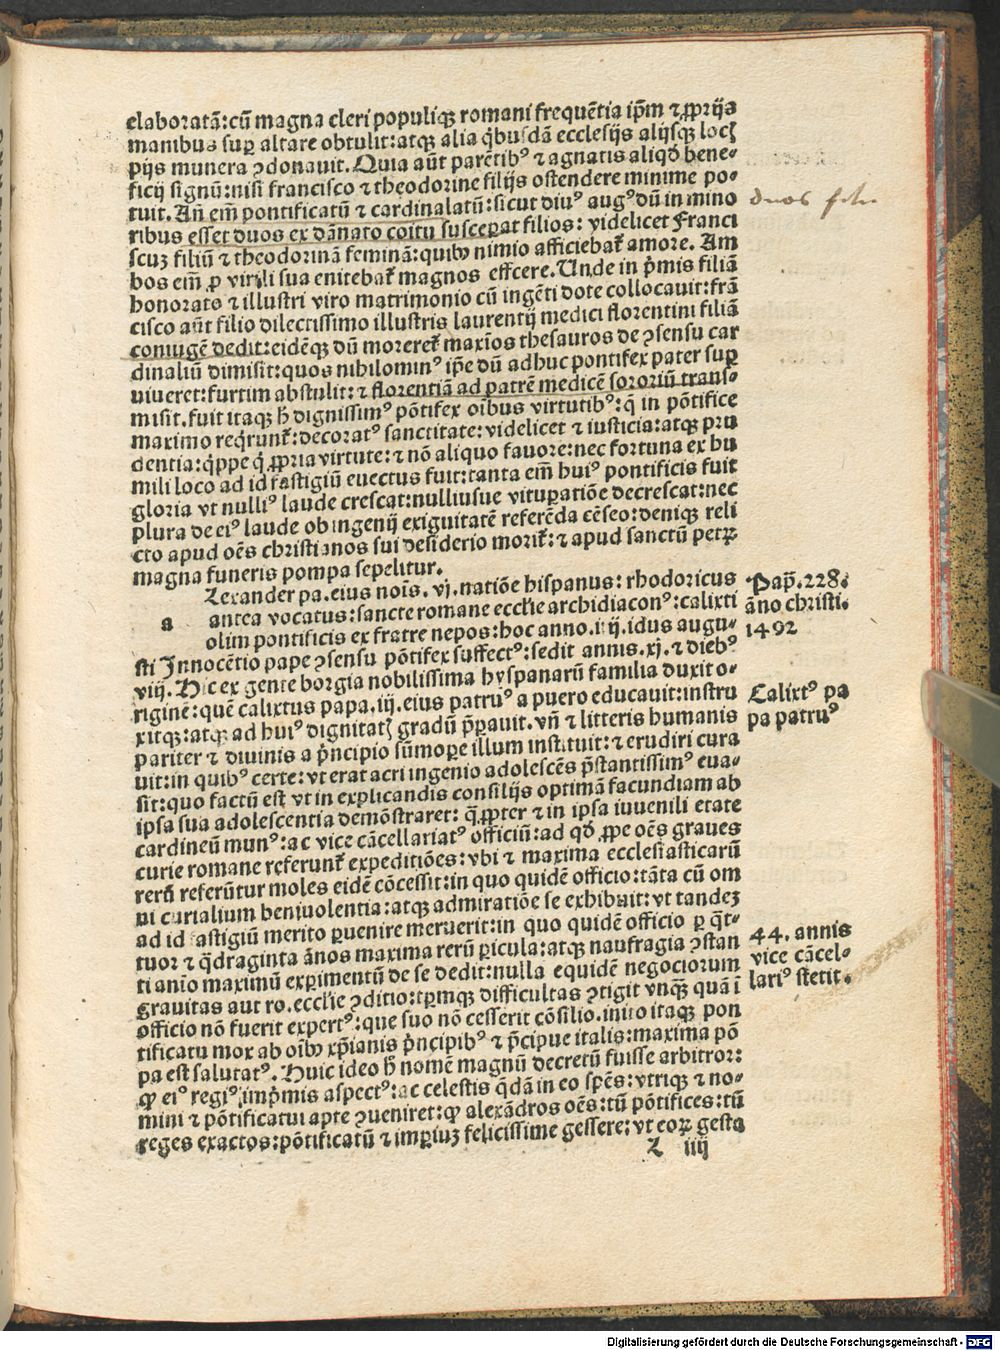 elaboratā: cū magna cleri populiqȝ romani frequētia ip̄m ⁊ ꝓprijs
manibus sup altare obtulit: atqȝ alia q̇busdā ecclesijs alijsqȝ locꝭ
pijs munera ꝯdonauit. Quia aūt parētibꝰ ⁊ agnatis aliqd̓ bene⸗
ficij signū: nisi francisco ⁊ theodorine filijs ostendere minime po⸗
tuit. An̄ em̄ pontificatū ⁊ cardinalatū: sicut diuꝰ augꝰ dū in mino
ribus esset duos ex dānato coitu susceperat filios: videlicet Franci
scuȝ filiū ⁊ theodorinā feminā: quibꝰ nimio afficiebat᷑ amore. Am
bos em̄ ꝓ virili sua enitebat᷑ magnos effcere. Unde in p̓mis filiā
honorate ⁊ illustri viro matrimonio cū ingēti dote collocauit: frā
cisco aūt filio dilectissimo illustris laurentij medici florentini filiā
coniugē dedit: eidēqȝ dū moreret᷑ maxīos thesauros de ꝯsensu car
dinaliū dimisit: quos nihilominꝰ ip̄e dū adhuc pontifex pater suꝑ
uiueret: furtim abstulit: ⁊ florentiā ad patrē medicē sororiū trans⸗
misit. fuit itaqȝ h̄ dignissimꝰ pōtifex oībus virtutibꝰ: q̄ in pōtifice
maximo reqrunt᷑: decoratꝰ sanctitate: videlicet ⁊ iusticia: atqȝ pru
dentia: q̇ppe q̇ ꝓpria virtute: ⁊ nō aliquo fauore: nec fortuna ex hu
mili loco ad id fastigiū euectus fuit: tanta em̄ huiꝰ pontificis fuit
gloria vt nulliꝰ laude crescat: nulliusue vituꝑatiōe decrescat: nec
plura de eiꝰ laude ob ingenij exiguitatē referēda cēseo: deniqȝ reli
cto apud oēs christianos sui desiderio morit᷑: ⁊ apud sanctū petꝝ
magna funeris pompa sepelitur.
a Lexander pa. eius nois. vj. natiōe hispanus: rhodoricus
antea vocatus: sancte romane eccl̄ie archidiaconꝰ: calixti
olim pontificis ex fratre nepos: hoc anno. iij. idus augu⸗
sti Innocētio pape ꝯsensu pōtifex suffectꝰ: sedit annis. xj. ⁊ diebꝰ
viij. Hic ex gente borgia nobilissima hyspanarū familia duxit o⸗
riginē: quē calixtus papa. iij. eius patruꝰ a puero educauit: instru
xitqȝ: atqȝ ad huiꝰ dignitatꝭ gradū p̄parauit. vn̄ ⁊ litteris humanis
pariter ⁊ diuinis a p̓ncipio sūmoꝑe illum instituit: ⁊ erudiri cura
uit: in quibꝰ certe: vt erat acri ingenio adolescēs p̄stantissimꝰ eua⸗
sit: quo factū est vt in explicandis consilijs optimā facundiam ab
ipsa sua adolescentia demōstraret: q̄ꝓpter ⁊ in ipsa iuuenili etate
cardineū munꝰ: ac vice cācellariatꝰ officiū: ad qd̓ ꝓpe oēs graues
curie romane referunt᷑ expeditiōes: vbi ⁊ maxima ecclesiasticarū
rerū referūtur moles eidē cōcessit: in quo quidē officio: tāta cū om
ni curialium beniuolentia: atqȝ admiratiōe se exhibuit: vt tandeȝ
ad id fastigiū merito ꝑuenire meruerit: in quo quidē officio ꝑ q̄t⸗
tuor ⁊ q̄draginta ānos maxima rerū ꝑicula: atqȝ naufragia ꝯstan
ti anīo maximū exꝑimentū de se dedit: nulla equidē negociorum
grauitas aut ro. eccl̄ie ꝯditio: tꝑmqȝ difficultas ꝯtigit vnqȝ quā ī
officio nō fuerit expertꝰ: que suo nō cesserit cōsilio. inito itaqȝ pon
tificatu mox ab oībꝰ xp̄ianis p̓ncipibꝰ ⁊ p̓cipue italis: maxima pō
pa est salutatꝰ. Huic ideo h̄ nomē magnū decretū fuisse arbitror:
ꝙ eiꝰ regiꝰ imp̓mis aspectꝰ: ac celestis q̄dā in eo spēs: vtriqȝ ⁊ no⸗
mini ⁊ pōtificatui apte ꝯueniret: ꝙ alexādros oēs: tū pōtifices: tū
reges exactos: pōtificatū ⁊ imꝑiuȝ felicissime gessere: vt eoꝝ gesta
Z iiij
duos
Pap̄. 228.
āno christi.
1492
Calixtꝰ pa
pa patruꝰ
44. annis
vice cācel⸗
lariꝰ stetit.
Digitalisierung gefördert durch die Deutsche Forschungsgemeinschaft - DFG